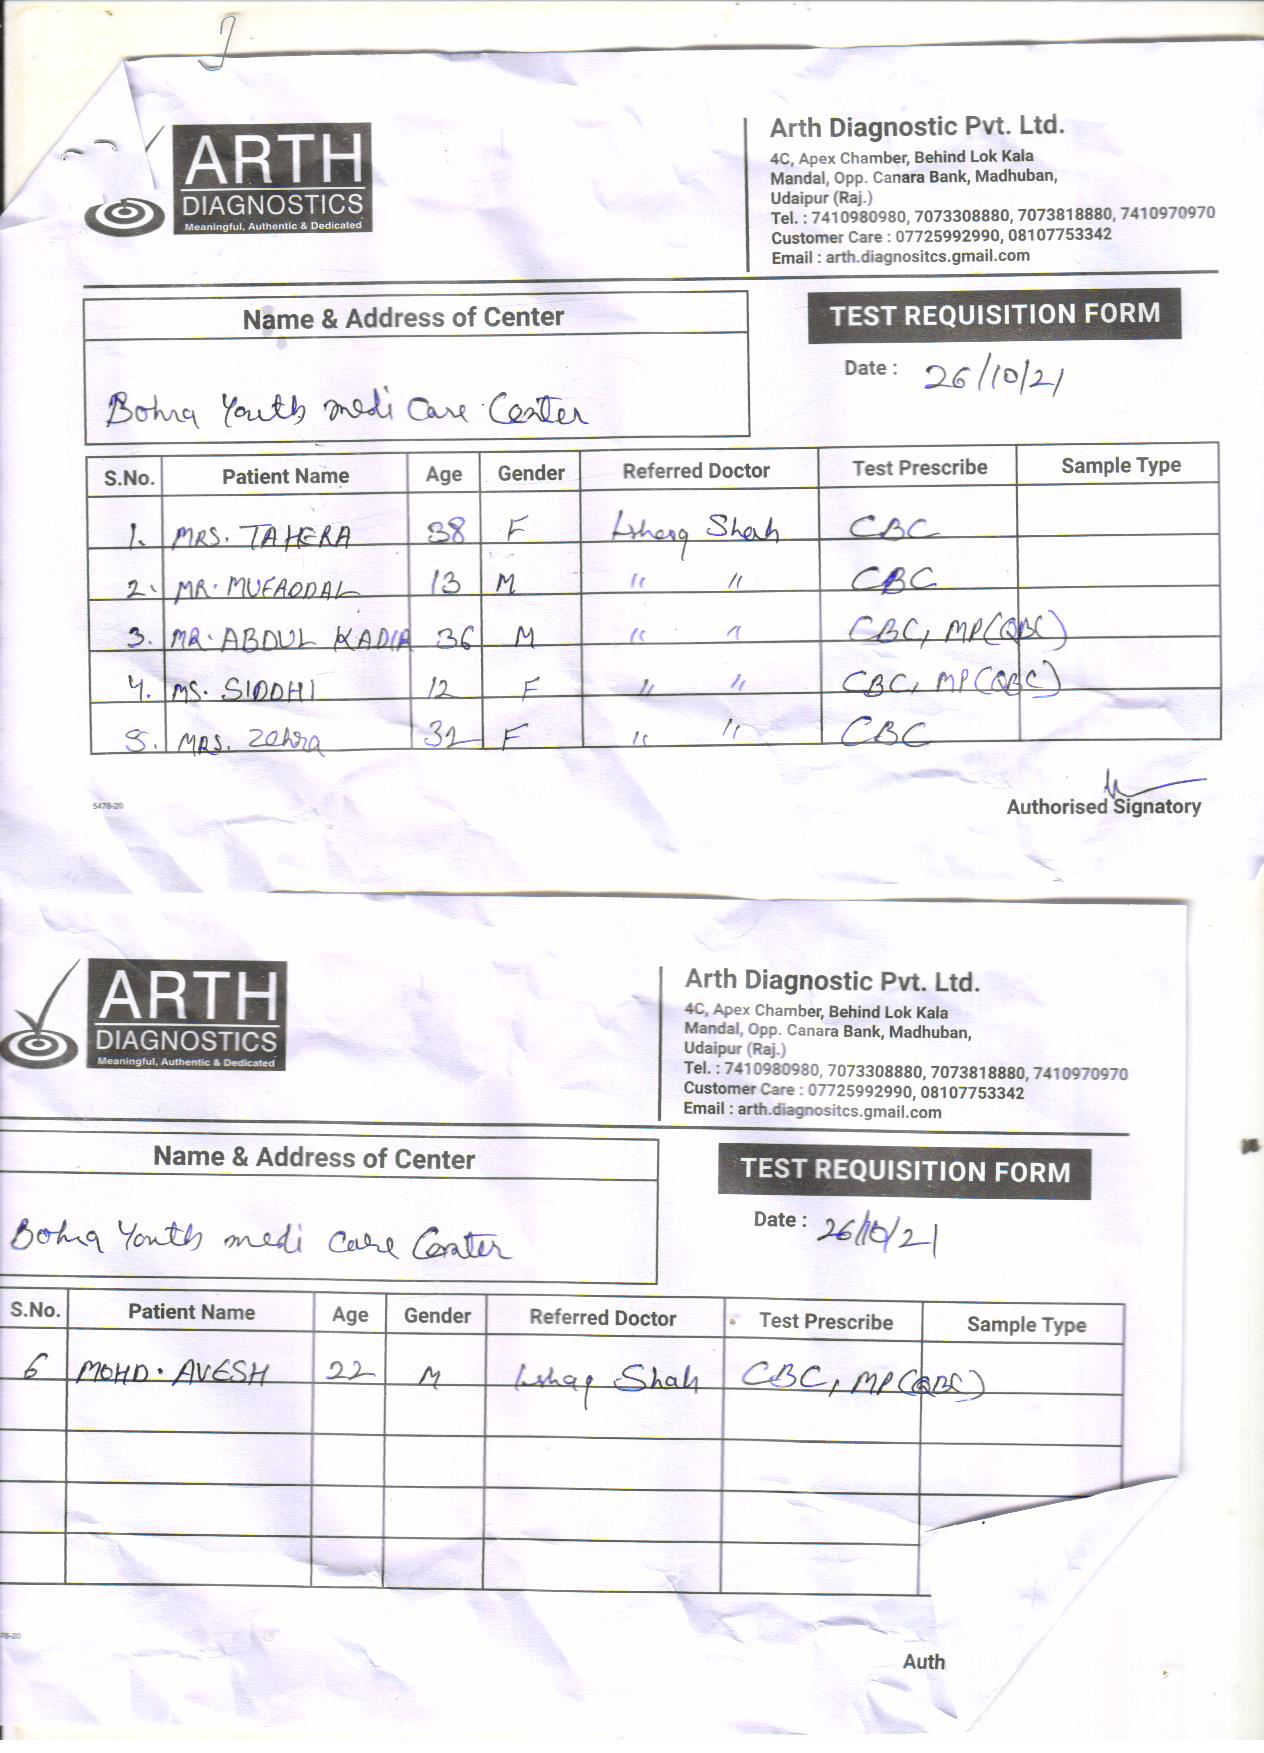 ARTH
DIAGNOSTICS
Meaningful, Authentic & Dedicated
Arth Diagnostic Pvt. Ltd.
4C, Apex Chamber, Behind Lok Kala
Mandal, Opp. Canara Bank, Madhuban,
Udaipur (Raj.)
Tel. : 7410980980, 7073308880, 7073818880, 7410970970
Customer Care : 07725992990, 08107753342
Email : arth.diagnositcs.gmail.com
Name & Address of Center
TEST REQUISITION FORM
Date : 26/10/21
Bohra Youth medi Care Center
S.No. Patient Name Age Gender Referred Doctor Test Prescribe Sample Type
1. MRS. TAHERA 38 F Ishaq Shah CBC
2. MR. MUFADDAL 13 M " " CBC
3. MR. ABDUL KADIR 36 M " " CBC, MP(QBC)
4. MS. SIDDHI 12 F " " CBC, MP(QBC)
5. MRS. Zehra 32 F " " CBC
5478-20
Authorised Signatory
ARTH
DIAGNOSTICS
Meaningful, Authentic & Dedicated
Arth Diagnostic Pvt. Ltd.
4C, Apex Chamber, Behind Lok Kala
Mandal, Opp. Canara Bank, Madhuban,
Udaipur (Raj.)
Tel. : 7410980980, 7073308880, 7073818880, 7410970970
Customer Care : 07725992990, 08107753342
Email : arth.diagnositcs.gmail.com
Name & Address of Center
TEST REQUISITION FORM
Date : 26/10/21
Bohra Youth medi care Center
S.No. Patient Name Age Gender Referred Doctor Test Prescribe Sample Type
6 MOHD. AVESH 22 M Ishaq Shah CBC, MP(QBC)
78-20
Auth